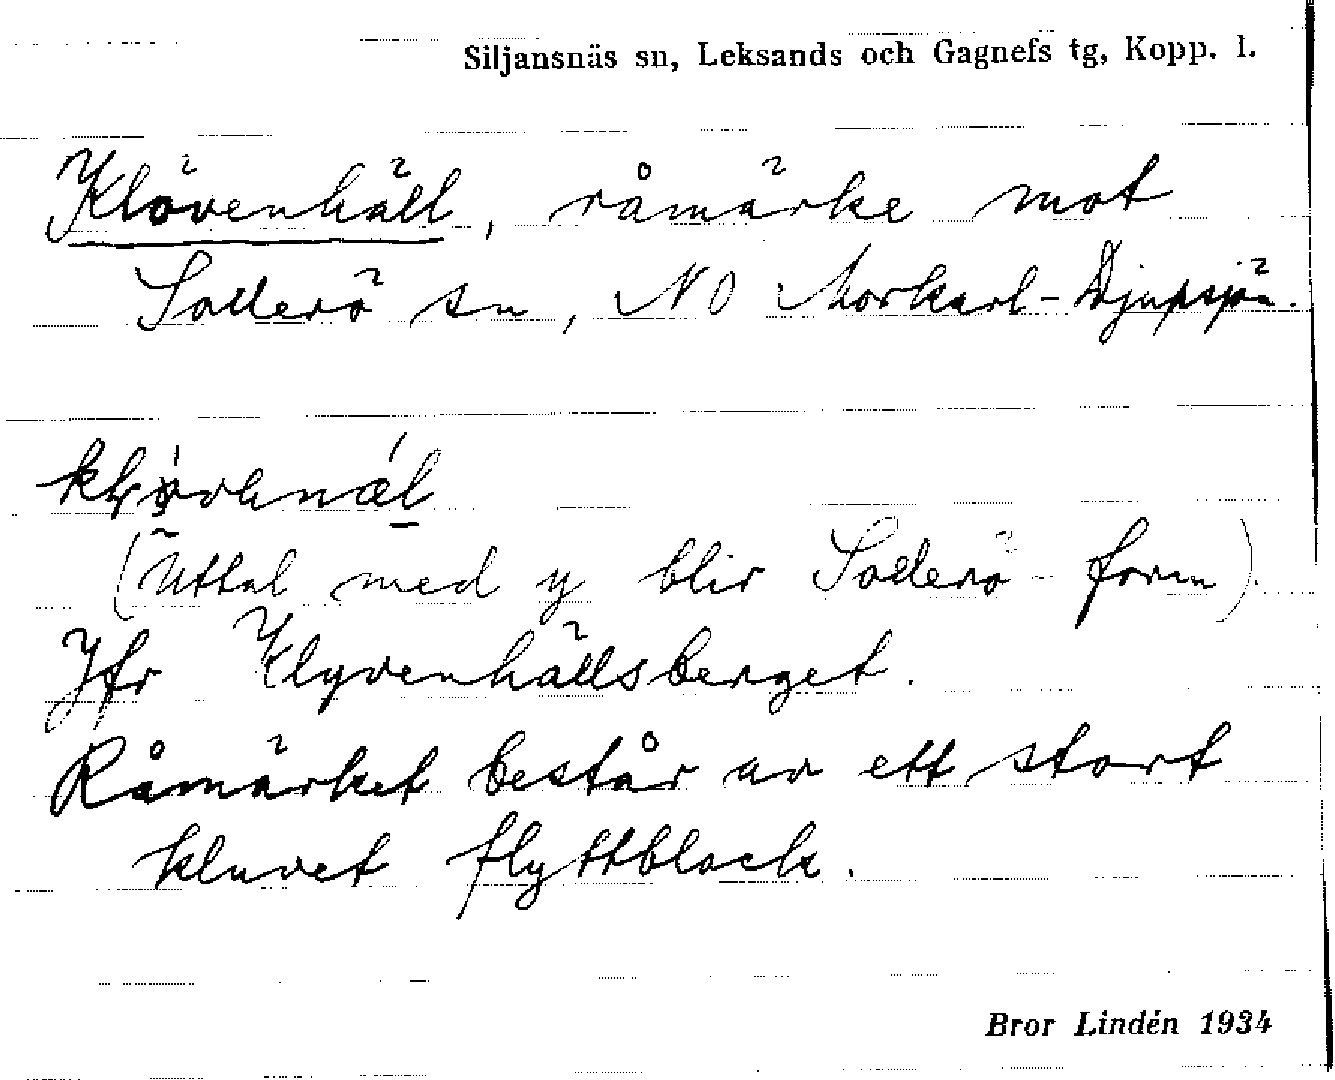 Siljansnäs sn, Leksands och Gagnefs tg, Kopp. l.
Klövenhäll, råmärke mot
Sollerö sn, NO Morkarl-Djupsjön.
(Uttal med y blir Sollerö-form).
Jfr Klyvenhällsberget.
Råmärket består av ett stort
kluvet flyttblock.
Bror Lindén 1934